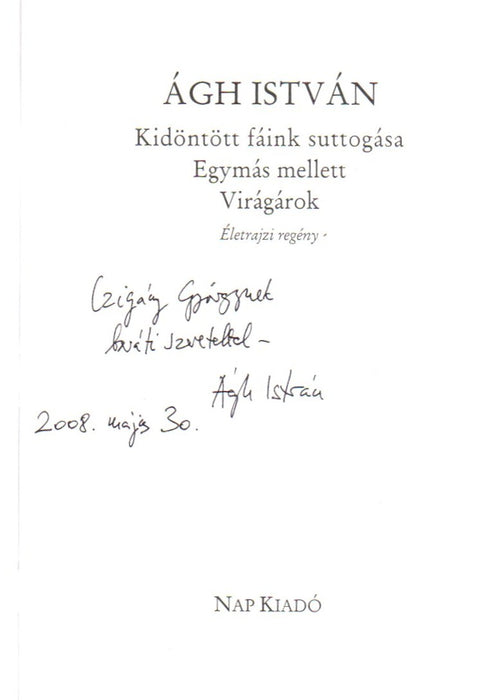 ÁGH ISTVÁN
Kidöntött fáink suttogása
Egymás mellett
Virágárok
Életrajzi regény -
Czigány Györgynek
baráti szeretettel –
Ágh István
2008. május 30.
NAP KIADÓ